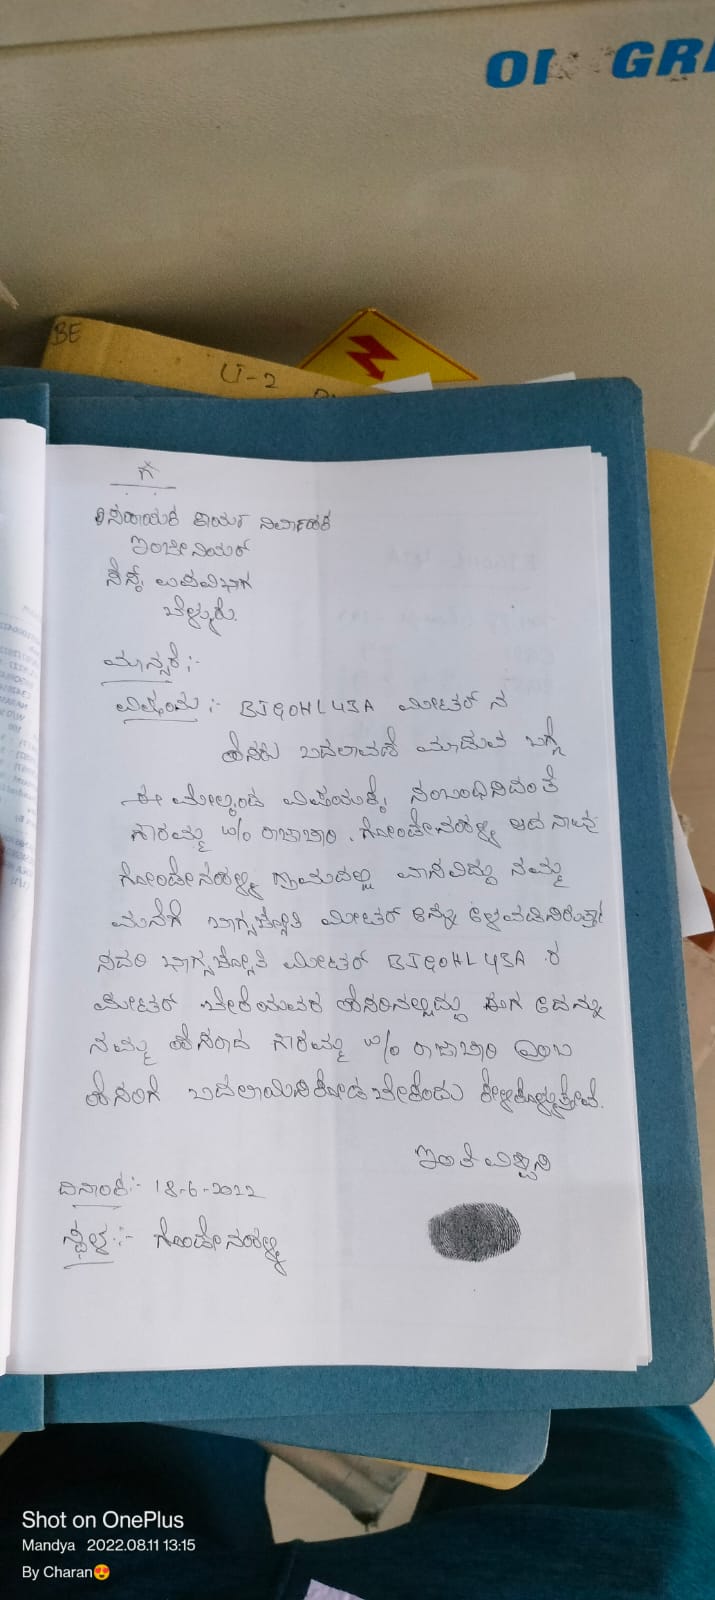 BE
U-2
ಗೆ
ಸಹಾಯಕ ಕಾರ್ಯ ನಿರ್ವಾಹಕ
ಇಂಜೀನಿಯರ್
ಸೆಸ್ಕ್ ಉಪವಿಭಾಗ
ಬೆಳ್ಳೂರು.
ಮಾನ್ಯರೆ :-
ವಿಷಯ :- BJGOHL43A ಮೀಟರ್ ನ
ಹೆಸರು ಬದಲಾವಣೆ ಮಾಡುವ ಬಗ್ಗೆ
ಈ ಮೇಲ್ಕಂಡ ವಿಷಯಕ್ಕೆ ಸಂಬಂಧಿಸಿದಂತೆ
ಗೌರಮ್ಮ w/o ರಾಜಾಚಾರಿ. ಗೊಂಡೇನಹಳ್ಳಿ ಆದ ನಾವು
ಗೊಂಡೇನಹಳ್ಳಿ ಗ್ರಾಮದಲ್ಲಿ ವಾಸವಿದ್ದು ನಮ್ಮ
ಮನೆಗೆ ಭಾಗ್ಯಜ್ಯೋತಿ ಮೀಟರ್ ಅನ್ನು
ಸದರಿ ಭಾಗ್ಯಜ್ಯೋತಿ ಮೀಟರ್ BJGOHL43A ರ
ಮೀಟರ್ ಬೇರೆಯವರ ಹೆಸರಿನಲ್ಲಿದ್ದು ಈಗ ಅದನ್ನು
ನಮ್ಮ ಹೆಸರಾದ ಗೌರಮ್ಮ w/o ರಾಜಾಚಾರಿ ಎಂಬ
ಹೆಸರಿಗೆ ಬದಲಾಯಿಸಿಕೊಡಬೇಕೆಂದು ಕೇಳಿಕೊಳ್ಳುತ್ತೇವೆ.
ಇಂತಿ ವಿಶ್ವಾಸಿ
ದಿನಾಂಕ:- 18-6-2022
ಸ್ಥಳ :- ಗೊಂಡೇನಹಳ್ಳಿ
Shot on OnePlus
Mandya 2022.08.11 13:15
By Charan😍